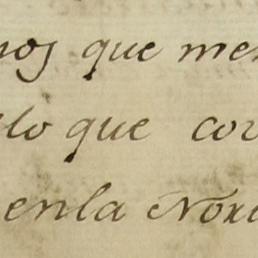 nos que me
lo que co
enla No